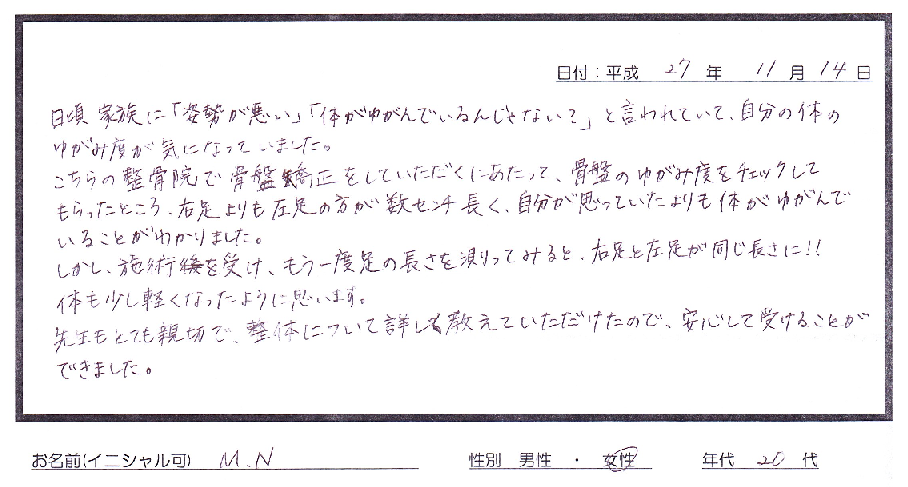 日付：平成 27 年 11 月 14 日
日頃 家族に「姿勢が悪い」「体がゆがんでいるんじゃない？」と言われていて、自分の体の
ゆがみ度が気になっていました。
こちらの整骨院で骨盤矯正をしていただくにあたって、骨盤のゆがみ度をチェックして
もらったところ、右足よりも左足の方が数センチ長く、自分が思っていたよりも体がゆがんで
いることがわかりました。
しかし、施術後を受け、もう一度足の長さを測ってみると、右足と左足が同じ長さに!!
体も少し軽くなったように思います。
先生もとても親切で、整体について詳しく教えていただけたので、安心して受けることが
できました。
お名前(イニシャル可) M.N 性別 男性 ・ 女性 年代 20 代